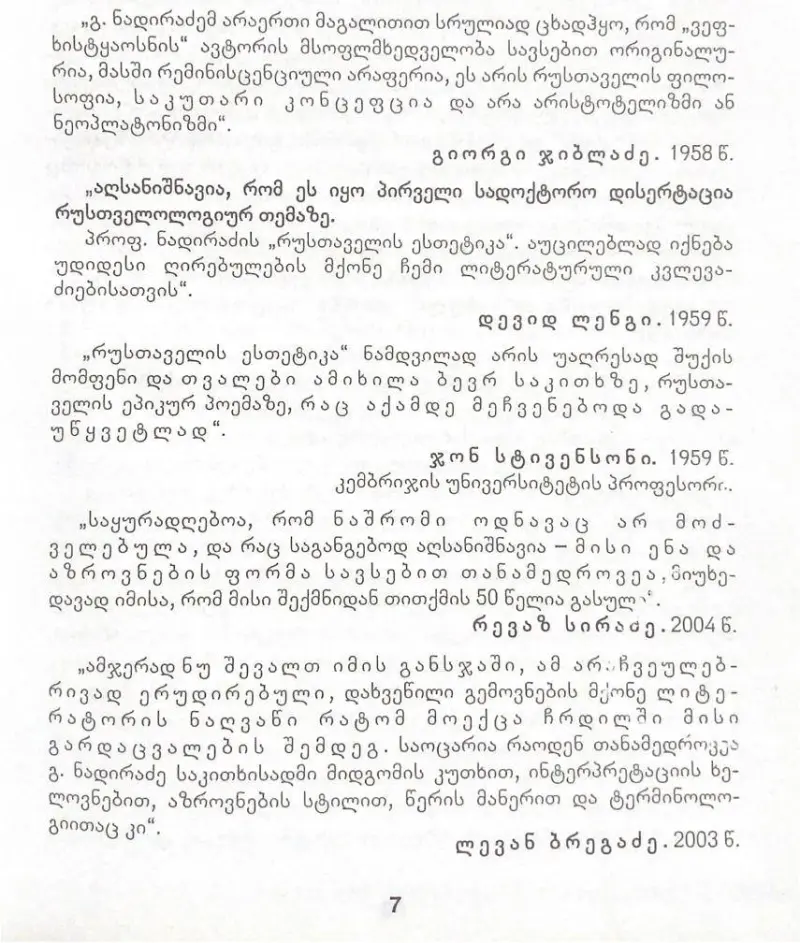 „გ. ნადირაძემ არაერთი მაგალითით სრულიად ცხადჰყო, რომ „ვეფ-
ხისტყაოსნის“ ავტორის მსოფლმხედველობა სავსებით ორიგინალუ-
რია, მასში რემინისცენციული არაფერია, ეს არის რუსთაველის ფილო-
სოფია, საკუთარი კონცეფცია და არა არისტოტელიზმი ან
ნეოპლატონიზმი“.
გიორგი ჯიბლაძე. 1958 წ.
„აღსანიშნავია, რომ ეს იყო პირველი სადოქტორო დისერტაცია
რუსთველოლოგიურ თემაზე.
პროფ. ნადირაძის „რუსთაველის ესთეტიკა“. აუცილებლად იქნება
უდიდესი ღირებულების მქონე ჩემი ლიტერატურული კვლევა-
ძიებისათვის“.
დევიდ ლენგი. 1959 წ.
„რუსთაველის ესთეტიკა“ ნამდვილად არის უაღრესად შუქის
მომფენი და თვალები ამიხილა ბევრ საკითხზე, რუსთა-
ველის ეპიკურ პოემაზე, რაც აქამდე მეჩვენებოდა გადა-
უწყვეტლად“.
ჯონ სტივენსონი. 1959 წ.
კემბრიჯის უნივერსიტეტის პროფესორი.
„საყურადღებოა, რომ ნაშრომი ოდნავაც არ მოძ-
ველებულა, და რაც საგანგებოდ აღსანიშნავია – მისი ენა და
აზროვნების ფორმა სავსებით თანამედროვეა, მიუხე-
დავად იმისა, რომ მისი შექმნიდან თითქმის 50 წელია გასულა“.
რევაზ სირაძე. 2004 წ.
„ამჯერად ნუ შევალთ იმის განსჯაში, ამ არაჩვეულებ-
რივად ერუდირებული, დახვეწილი გემოვნების მქონე ლიტე-
რატორის ნაღვაწი რატომ მოექცა ჩრდილში მისი
გარდაცვალების შემდეგ. საოცარია რაოდენ თანამედროვეა
გ. ნადირაძე საკითხისადმი მიდგომის კუთხით, ინტერპრეტაციის ხე-
ლოვნებით, აზროვნების სტილით, წერის მანერით და ტერმინოლო-
გიითაც კი“.
ლევან ბრეგაძე. 2003 წ.
7